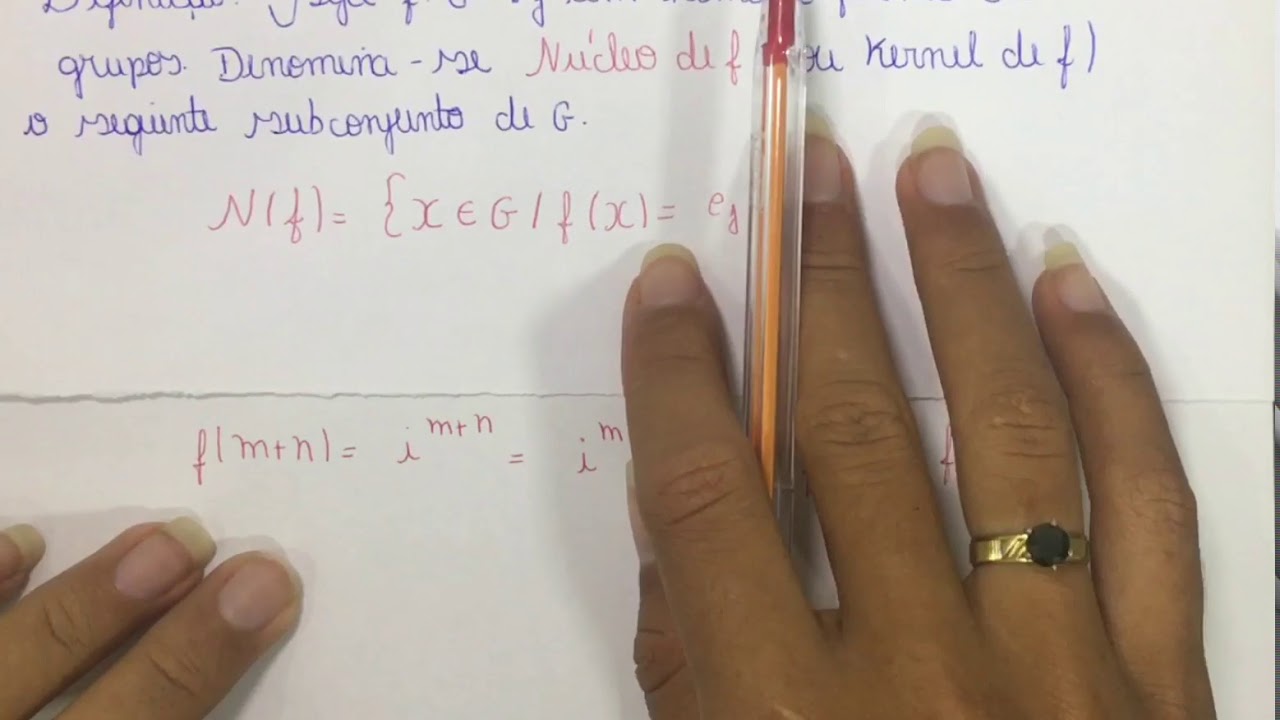 Definição: Seja f: G
grupos. Dinomina-se Núcleo de f ou Kernel de f)
o seguinte subconjunto de G.
N(f) = {x ∈ G / f(x) = e
f(m+n) = i^{m+n} = i^m f